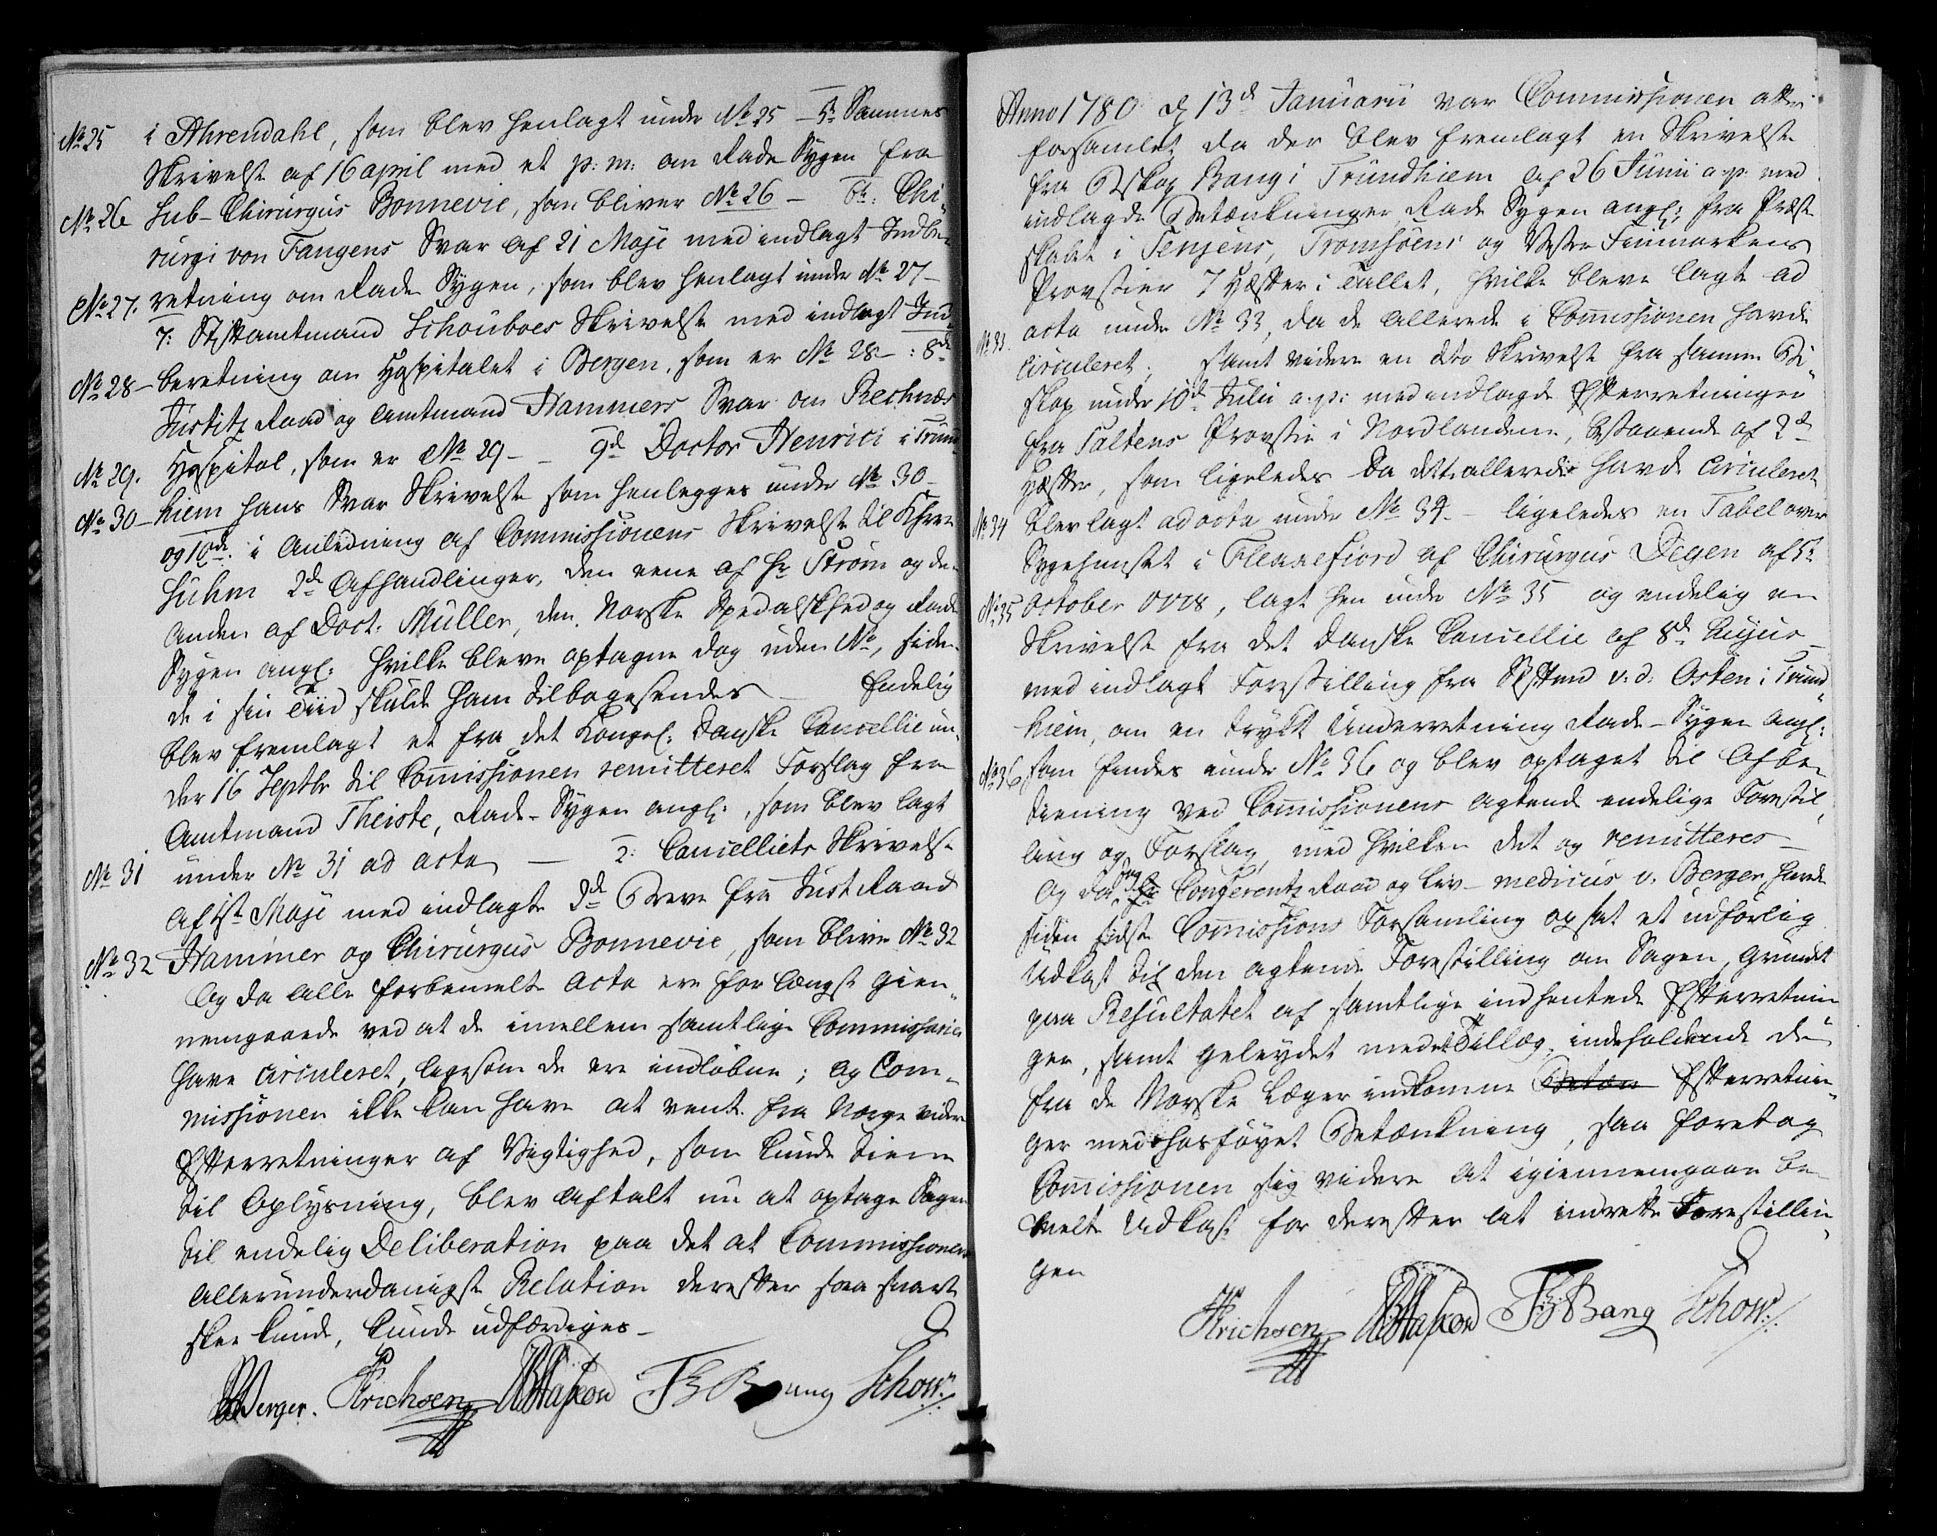 No 25 i Ahrendahl, som blev henlagt under No 25 — 5t Sammes
Skrivelse af 16 april med et p: m: om Rade Sygen fra
No 26 Sub-Chirurgus Bonnevie, som bliver No 26 — 6te: Chi-
rurgi von Fangens Svar af 21 Maji med indlagt Indbe-
No 27. retning om Rade Sygen, som blev henlagt under No 27 —
7: Stiftamtmand Schouboes Skrivelse med indlagt Ind-
No 28 — beretning om Hospitalet i Bergen, som er No 28 — : 8de
Justitz Raad og Amtmand Hammers Svar om Reknæs
No 29. Hospital, som er No 29 — — 9d Doctor Henrici i Trund-
No 30 — hiem hans Svar Skrivelse som henlegges under No 30 —
og 10de i Anledning af Commissionens Skrivelse til Khrre
Suhm 2de Afhandlinger, den eene af Hr Strøm og den
anden af Doct: Müller, den Norske Spedalskhed og Rade
Sygen angl: hvilke bleve optagne dog uden No, siden
de i sin Tiid skulde ham tilbagesendes — Endelig
blev fremlagt et fra det Kongel: Danske Cancellie un-
der 16 Septbr til Commissionen remitteret Forslag fra
Amtmand Theiste, Rade-Sygen angl:, som blev lagt
No 31 under No 31 ad acta — 2: Cancelliets Skrivelse
af 1st Maji med indlagte 2de Breve fra Just Raad
No 32 Hammer og Chirurgus Bonnevie, som blive No 32
Og da alle forbemelte Acta ere for længst gien-
nemgaaede ved at de imellem samtlige Commissarier
have circuleret, ligesom de ere indløbne; og Com-
missionen ikke kan have at vente fra Norge videre
Efterretninger af Vigtighed, som kunde tiene
til Oplysning, blev aftalt nu at optage Sagen
til endelig Deliberation paa det at Commissionens
allerunderdanigste Relation derefter saa snart
skee kunde, kunde udfærdiges —
Berger. Henrichsen Bang Schow
Anno 1780 d 13d Januarii var Commissionen atter
forsamlet da der blev fremlagt en Skrivelse
fra Biskop Bang i Trundhiem af 26 Junii a. p. med
indlagde Betænkninger Rade Sygen angl: fra Præste
skabet i Senjens, Tromsøens og Vester Finmarkens
Provstier 7 Hæfter i Tallet, hvilke bleve lagt ad
No 33. acta under No 33, da de allerede i Commissionen havde
circuleret, samt videre en dto Skrivelse fra samme Bi-
skop under 10de Julii a. p: med indlagde Efterretninger
fra Saltens Provstie i Nordlandene, bestaaende af 2de
Hæfter, som ligeledes da dette allerede havde circuleret
No 34 blev lagt ad acta under No 34 — ligeledes en Tabel over
Sygehuuset i Flekkefiord af Chirurgus Degen af 5t
No 35 October 1778, lagt hen under No 35 og endelig en
Skrivelse fra det danske Cancellie af 8d hujus —
med indlagt Forestilling fra Stiftmd v. d. Osten i Trund-
hiem, om en trykt Underretning Rade-Sygen angl:
No 36 som findes under No 36 og blev optaget til Afbe-
tiening ved Commissionens agtende endelige Forestil-
ling og Forslag med hvilken det og remitteres —
Og da Conferentz Raad og Liv-medicus v. Berger havde
siden sidste Commissions Forsamling opsat et udførlig
Udkast til den agtende Forestilling om Sagen, grundet
paa Resultatet af samtlige indhentede Efterretnin-
ger, samt geleydet med et Tillæg, indeholdende de
fra de Norske Læger indkomne Betæn Efterretnin-
ger med hosføyet Betænkning, saa foretog
Commissionen sig videre at igiennemgaae be-
melte Udkast for derefter at indrette Forestillin-
gen
Henrichsen Bang Schow